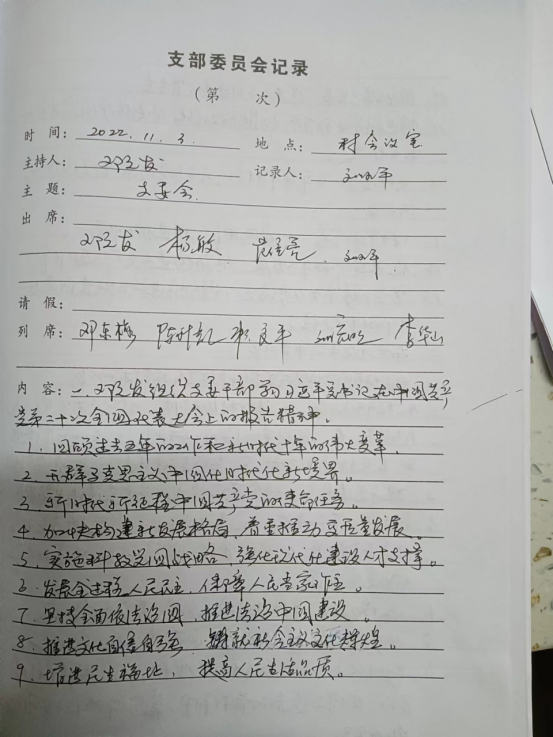 支部委员会记录
（第 次）
时 间： 2022.11.3. 地 点： 村会议室
主持人： 邓程发 记录人：
主 题： 支委会
出 席：
杨敏
请 假：
列 席： 邓东梅 李华山
内 容：一、邓程发组织支委干部学习习近平总书记在中国共产
党第二十次全国代表大会上的报告精神。
1、回顾过去五年的工作和新时代十年的伟大变革。
2、开辟马克思主义中国化时代化新境界。
3、新时代新征程中国共产党的使命任务。
4、加快构建新发展格局，着重推动高质量发展。
5、实施科教兴国战略，强化现代化建设人才支撑。
6、发展全过程人民民主，保障人民当家作主。
7、坚持全面依法治国，推进法治中国建设。
8、推进文化自信自强，铸就社会主义文化辉煌。
9、增进民生福祉，提高人民生活品质。